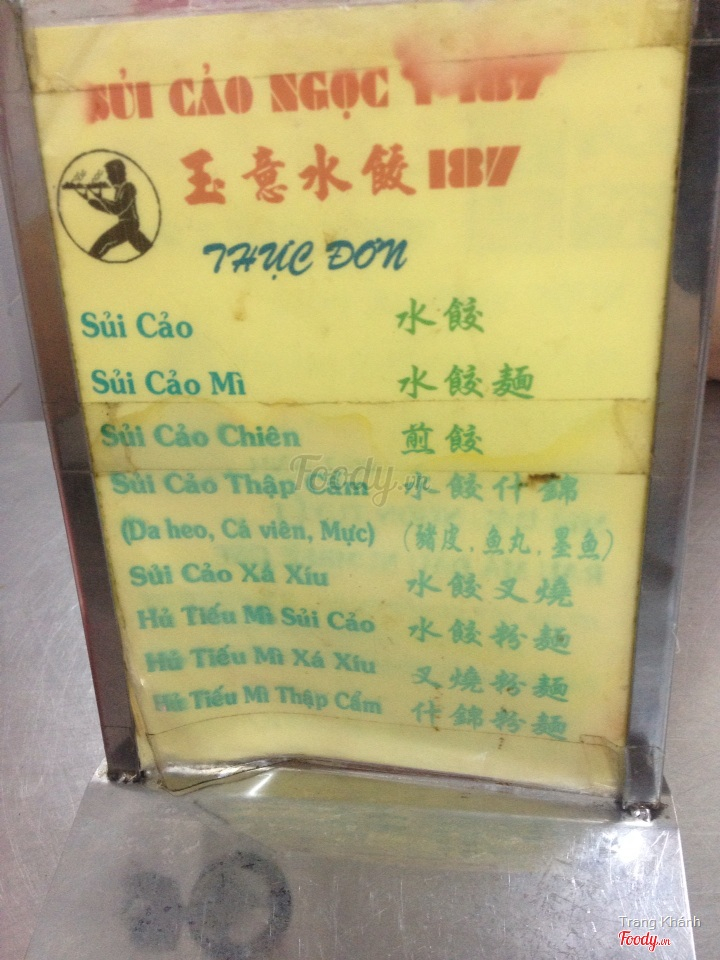 SỦI CẢO NGỌC Ý 187
玉意水餃 187
THỰC ĐƠN
Sủi Cảo 水餃
Sủi Cảo Mì 水餃麵
Sủi Cảo Chiên 煎餃
Sủi Cảo Thập Cẩm 水餃什錦
(Da heo, Cá viên, Mực) (豬皮,魚丸,墨魚)
Sủi Cảo Xá Xíu 水餃叉燒
Hủ Tiếu Mì Sủi Cảo 水餃粉麵
Hủ Tiếu Mì Xá Xíu 叉燒粉麵
Hủ Tiếu Mì Thập Cẩm 什錦粉麵
Foody.vn
Trang Khánh
Foody.vn